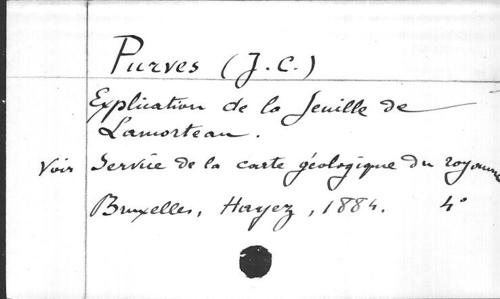 Purves (J. C.)
Explication de la feuille de
Lamorteau.
Voir Service de la carte géologique du royaume
Bruxelles, Hayez, 1884. 4°